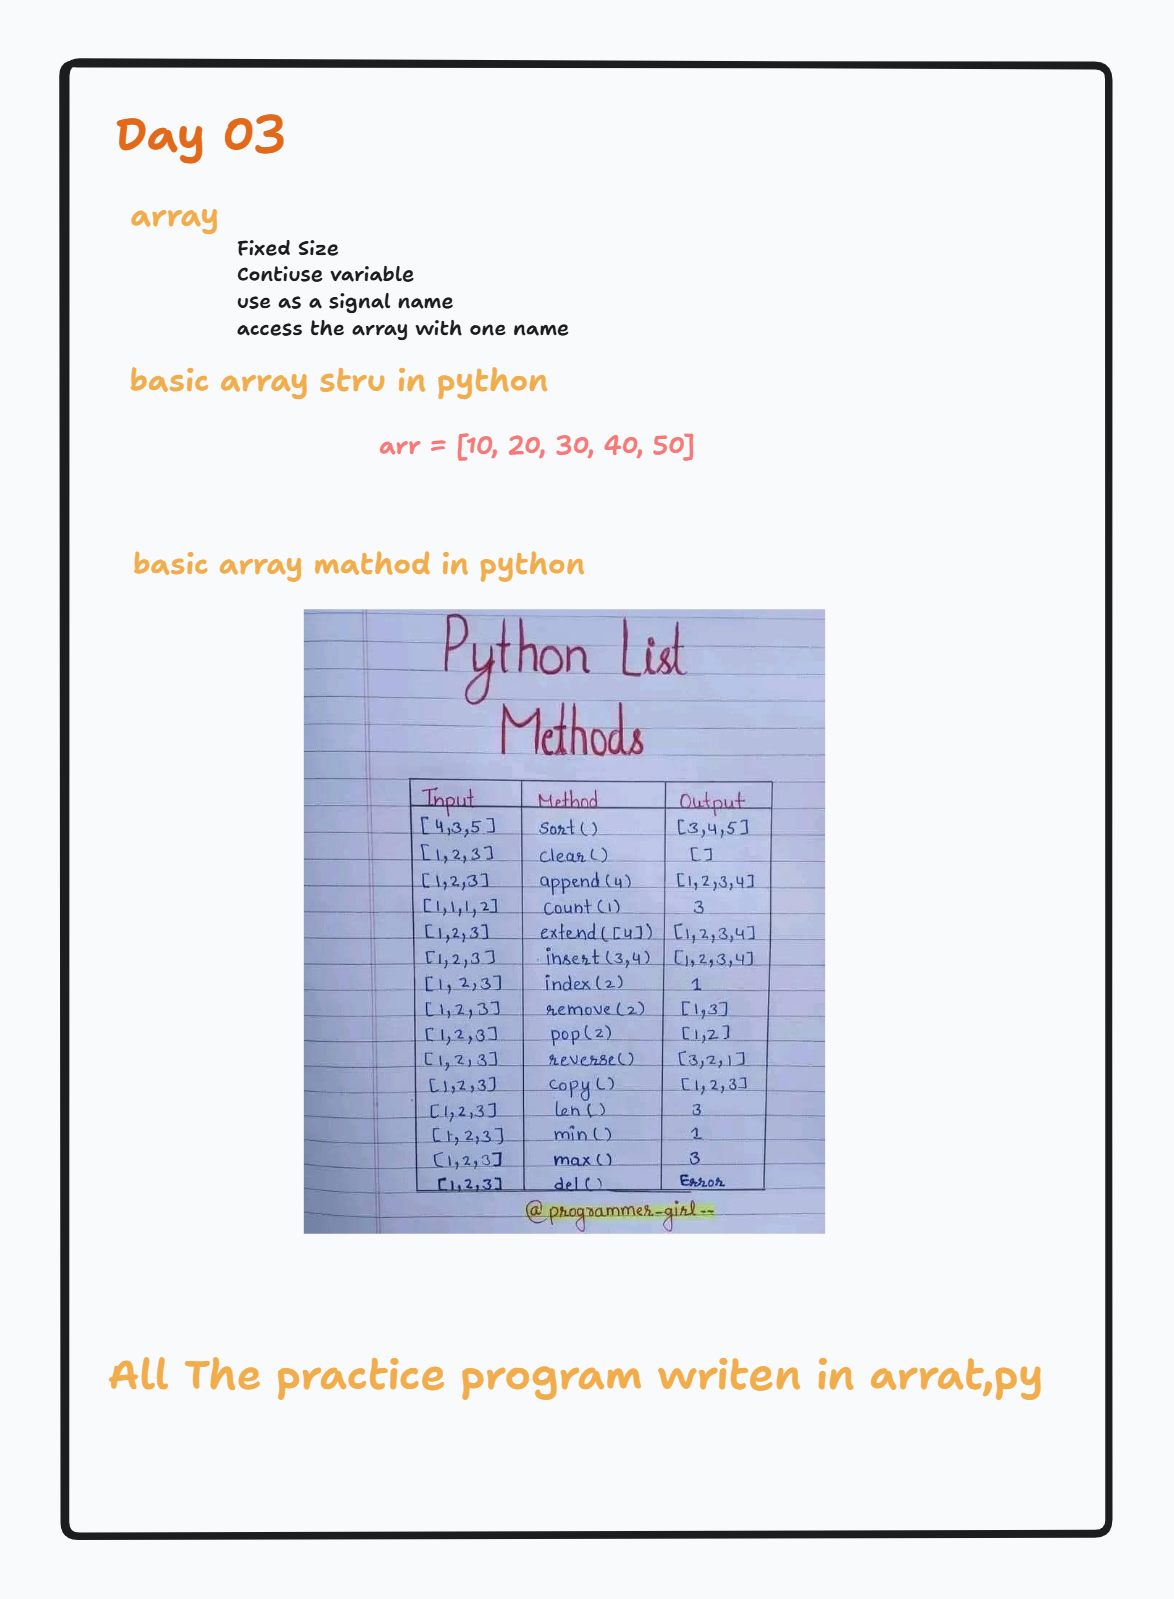 Day 03
array
Fixed Size
Contiuse variable
use as a signal name
access the array with one name
basic array stru in python
arr = [10, 20, 30, 40, 50]
basic array mathod in python
Python List
Methods
Input Method Output
[4,3,5] sort() [3,4,5]
[1,2,3] clear() []
[1,2,3] append(4) [1,2,3,4]
[1,1,1,2] count(1) 3
[1,2,3] extend([4]) [1,2,3,4]
[1,2,3] insert(3,4) [1,2,3,4]
[1,2,3] index(2) 1
[1,2,3] remove(2) [1,3]
[1,2,3] pop(2) [1,2]
[1,2,3] reverse() [3,2,1]
[1,2,3] copy() [1,2,3]
[1,2,3] len() 3
[1,2,3] min() 1
[1,2,3] max() 3
[1,2,3] del() Error
@programmer-girl--
All The practice program writen in arrat,py